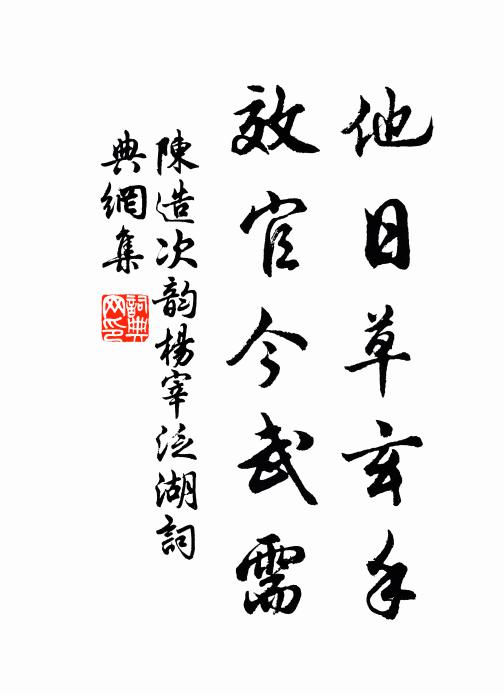 他日草玄手
效官今武需
陳造次韵楊宰泛湖詞
典網集
詞典网印